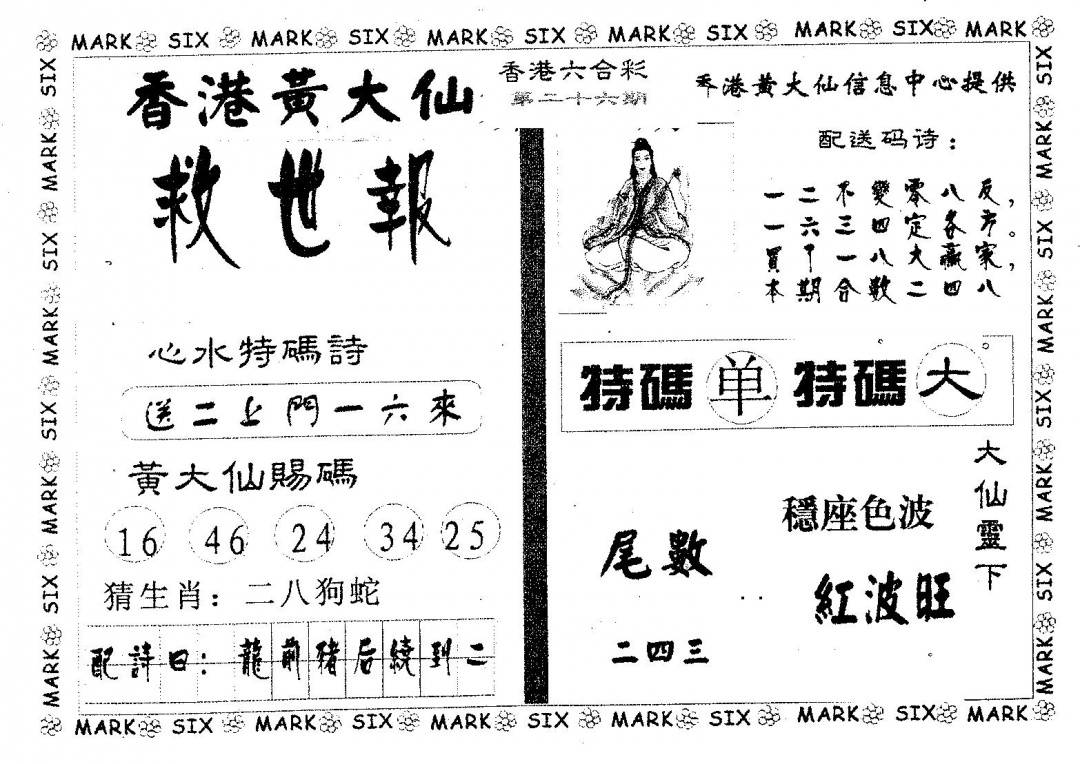 MARK SIX MARK SIX MARK SIX MARK SIX MARK SIX MARK
香港黃大仙
救世報
心水特碼詩
送二上門一六來
黃大仙賜碼
16 46 24 34 25
猜生肖：二八狗蛇
配詩曰：龍前豬后繞到二
香港六合彩
第二十六期
香港黃大仙信息中心提供
配送码诗：
一二不變零八反，
一六三四定各方。
買下一八大贏家，
本期合數二四八
特碼单 特碼大
大仙靈下
穩座色波
紅波旺
尾數
二四三
MARK SIX MARK SIX MARK SIX MARK SIX MARK SIX MARK
SIX MARK SIX MARK SIX MARK SIX MARK
SIX MARK SIX MARK SIX MARK SIX MARK